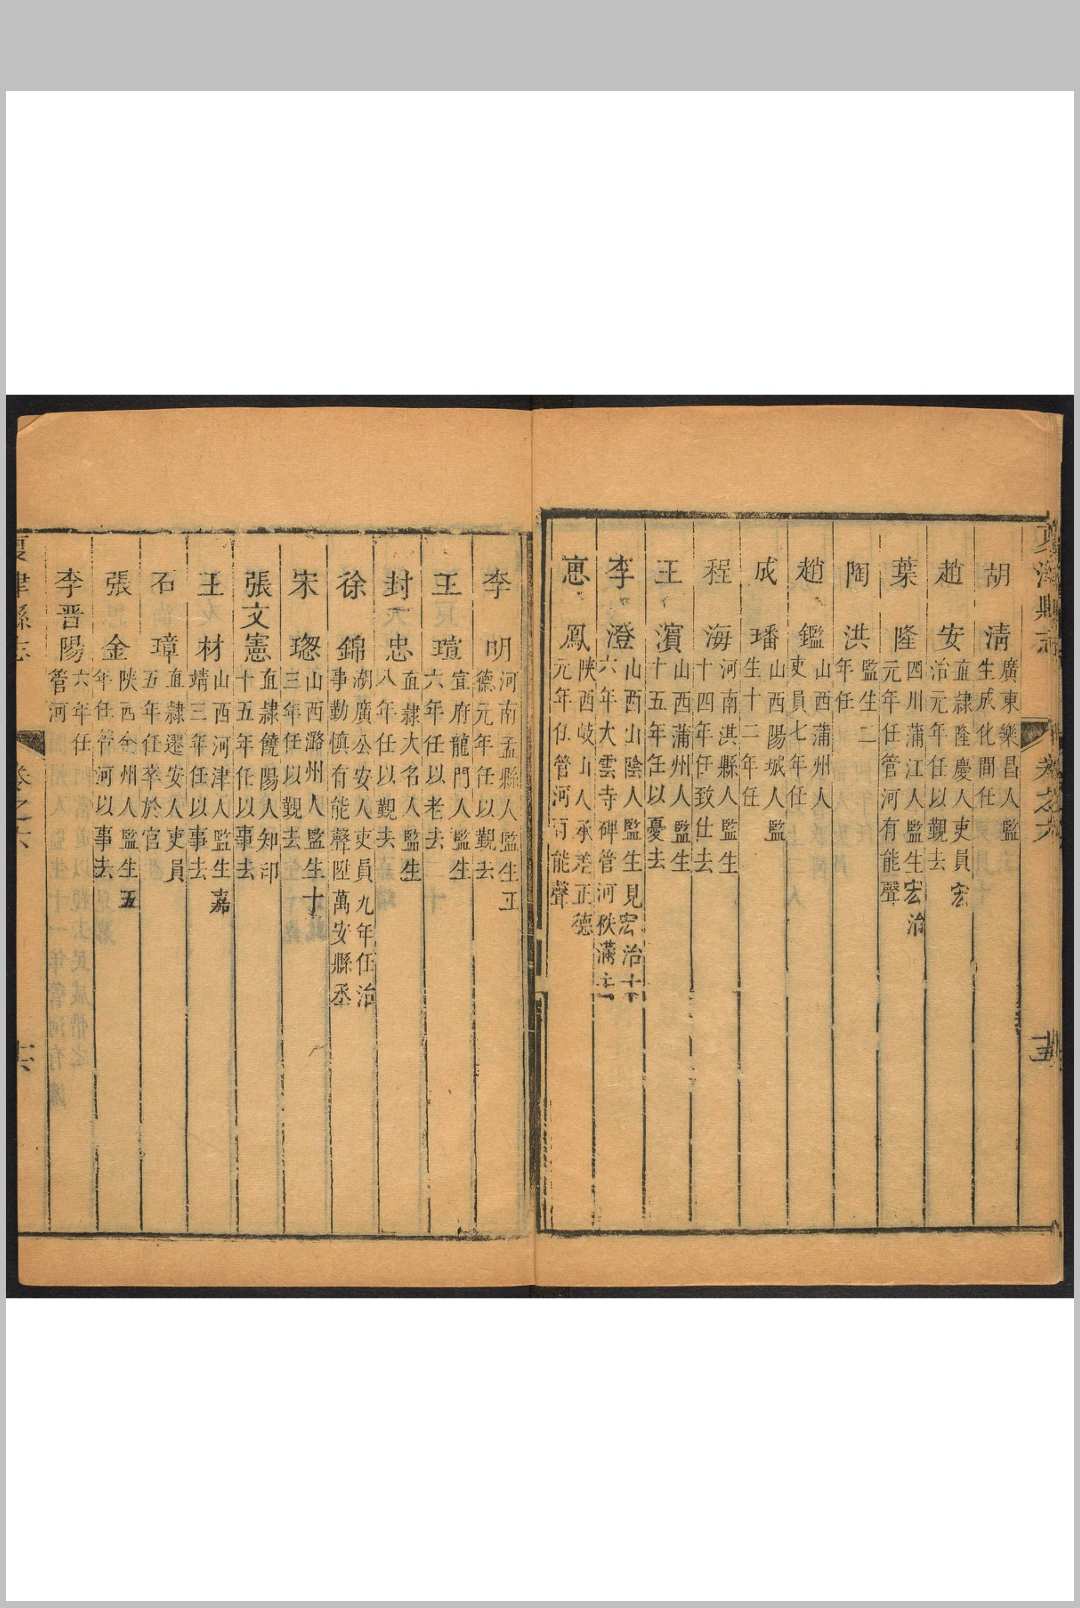 夏津縣志
卷之六
十五
胡清 廣東樂昌人監
生成化間任
趙安 直隷隆慶人吏員宏
治元年任以覲去
葉隆 四川蒲江人監生宏治
元年任管河有能聲
陶洪 監生二
年任
趙鑑 山西蒲州人
吏員七年任
成璠 山西陽城人監
生十二年任
程海 河南淇縣人監生
十四年任致仕去
王濵 山西蒲州人監生
十五年任以憂去
李澄 山西山陰人監生見宏治十
六年大雲寺碑管河秩滿去
恵鳳 陝西岐山人承差正德
元年任管河有能聲
李明 河南孟縣人監生正
德元年任以覲去
王瑄 宣府龍門人監生
六年任以老去
封忠 直隷大名人監生
八年任以覲去
徐錦 湖廣公安人吏員九年任治
事勤慎有能聲陞萬安縣丞
宋璁 山西潞州人監生十
三年任以覲去
張文憲 直隷饒陽人知印
十五年任以事去
王材 山西河津人監生嘉
靖三年任以事去
石璋 直隷遷安人吏員
五年任卒於官
張金 陝西金州人監生五
年任管河以事去
李晋陽 六年任
管河
夏津縣志
卷之六
十六